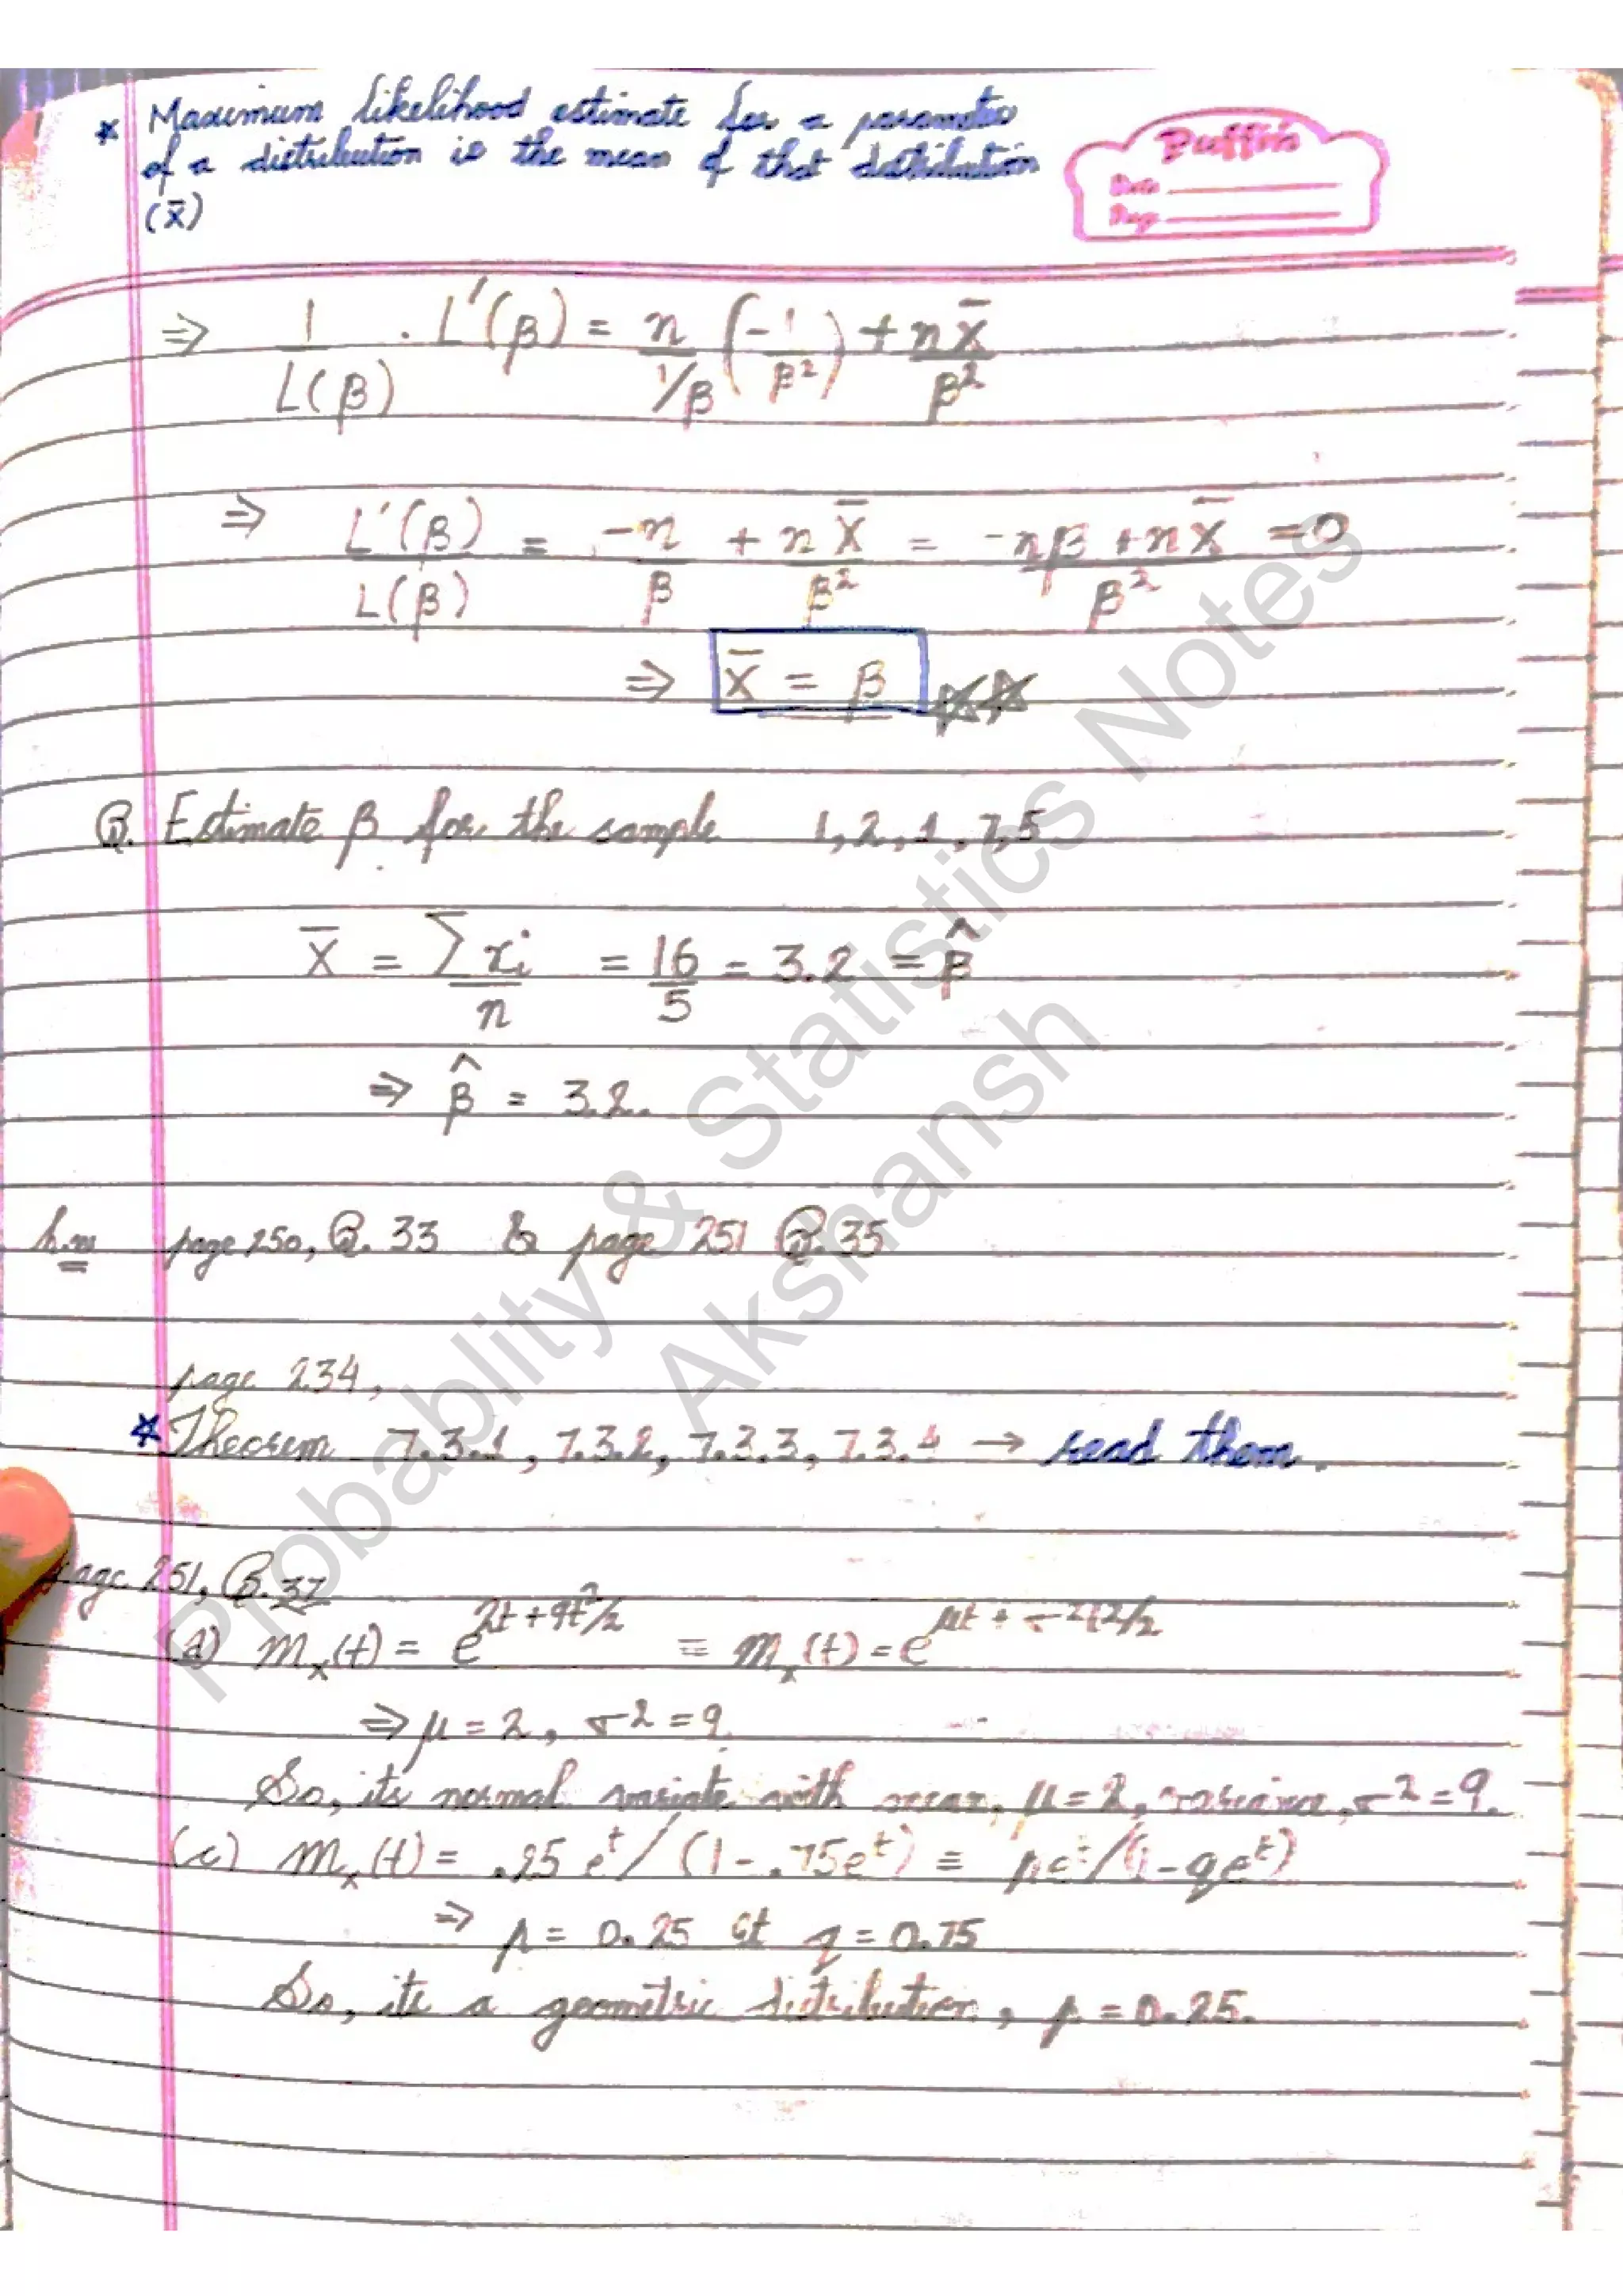 * Maximum likelihood estimate for a parameter
of a distribution is the mean of that distribution
(x̄)
Puffin
Date
Page
⇒ 1/L(β) . L'(β) = n/(1/β) (-1/β²) + nx̄/β²
⇒ L'(β)/L(β) = -n/β + nx̄/β² = (-nβ + nx̄)/β² = 0
⇒ x̄ = β
Q. Estimate β for the sample 1, 2, 1, 7, 5
x̄ = Σxi/n = 16/5 = 3.2 = β̂
⇒ β̂ = 3.2.
h.w page 250, Q. 33 & page 251 Q. 35
page 234,
* Theorem 7.3.1, 7.3.2, 7.3.3, 7.3.4 → read them.
page 251, Q. 37
mₓ(t) = e^(2t + 9t²/2) ≡ mₓ(t) = e^(μt + σ²t²/2)
⇒ μ = 2, σ² = 9.
So, its normal variate with mean, μ = 2, variance, σ² = 9.
(c) mₓ(t) = .25 eᵗ / (1 - .75eᵗ) ≡ peᵗ/(1 - qeᵗ)
⇒ p = 0.25 & q = 0.75
So, its a geometric distribution, p = 0.25.
Probablity & Statistics Notes
Akshansh